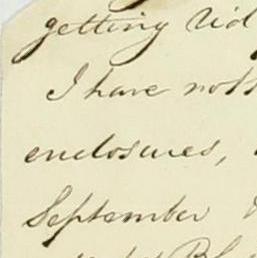 getting rid
I have
enclosures,
September